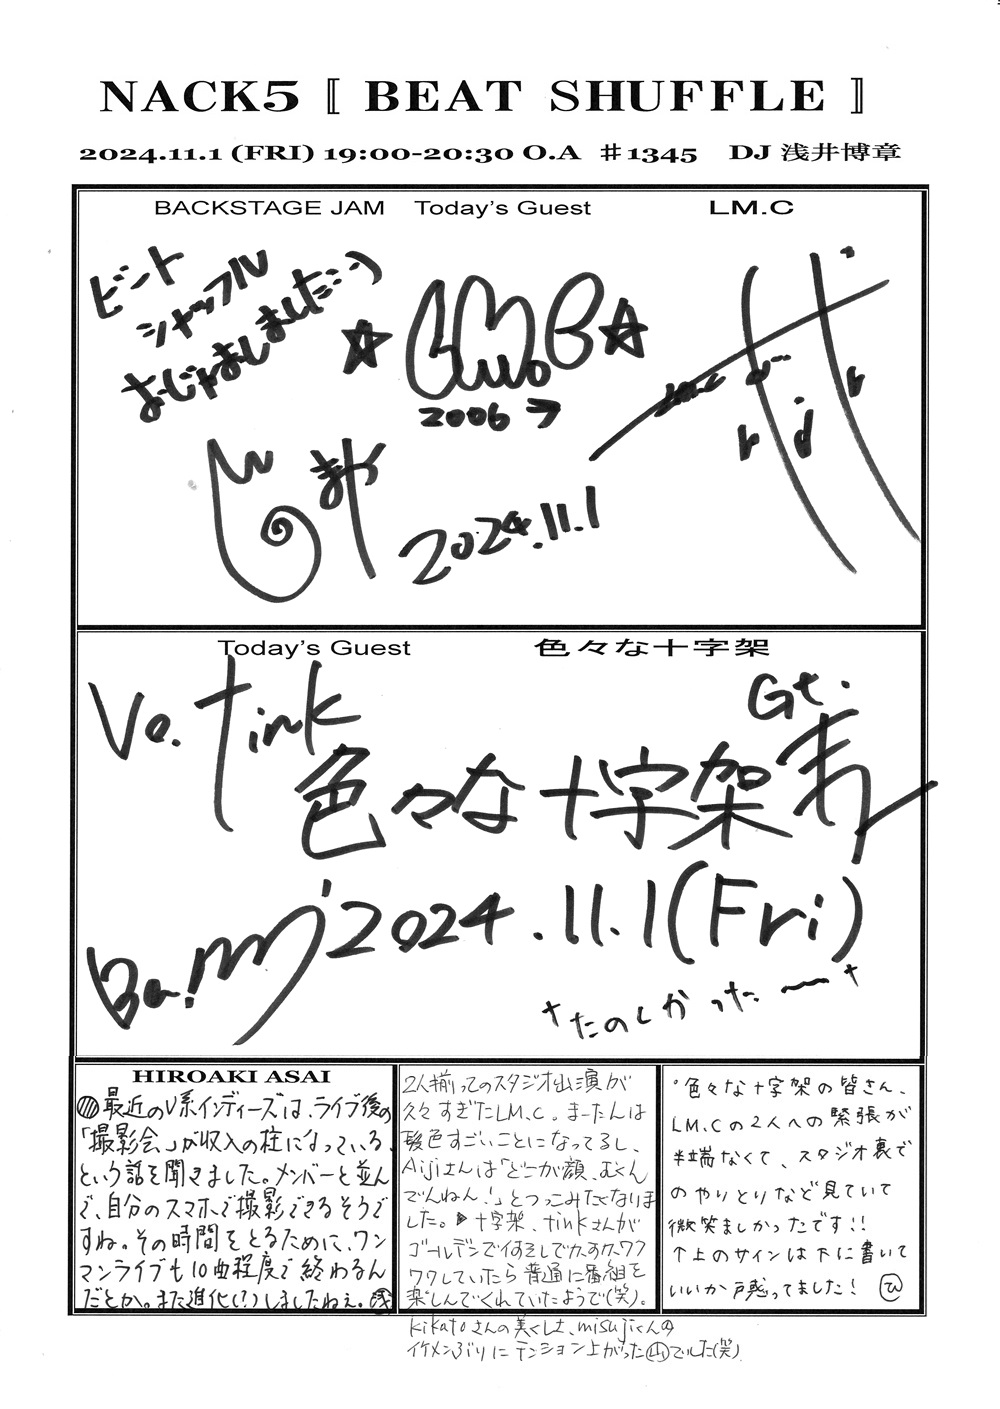 NACK5 〚 BEAT SHUFFLE 〛
2024.11.1 (FRI) 19:00-20:30 O.A ♯1345 DJ 浅井博章
BACKSTAGE JAM Today's Guest LM.C
ビート
シャッフル
おじゃましました:-)
2006→
まや
2024.11.1
Today's Guest 色々な十字架
Vo. tink
Gt.
色々な十字架
Ba.
2024.11.1(Fri)
たのしかった〜
HIROAKI ASAI
最近のV系インディーズは、ライブ後の
「撮影会」が収入の柱になっている、
という話を聞きました。メンバーと並ん
で、自分のスマホで撮影できるそうで
すね。その時間をとるために、ワン
マンライブも10曲程度で終わるん
だとか。また進化(?)しましたねぇ。浅
2人揃ってのスタジオ出演が
久々すぎたLM.C。まーたんは
髪色すごいことになってるし、
Aijiさんは「どこが顔、むくん
でんねん!」とつっこみたくなりま
した。▶十字架、tinkさんが
ゴールデンで何をしでかすかワク
ワクしていたら普通に番組を
楽しんでくれていたようで(笑)。
kikatoさんの美くしさ、misujiくんの
イケメンぶりにテンション上がった山でした(笑)
・色々な十字架の皆さん、
LM.Cの2人への緊張が
半端なくて、スタジオ裏で
のやりとりなど見ていて
微笑ましかったです!!
↑上のサインは下に書いて
いいか戸惑ってました! ひ